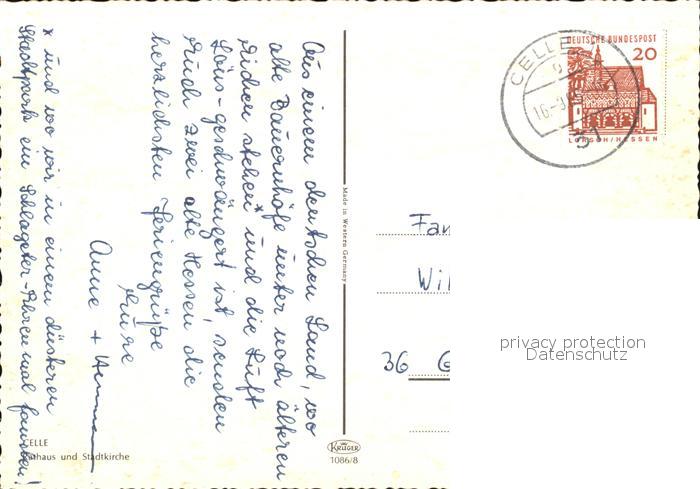 Aus einem deutschen Land, wo
alte Bauernhöfe unter noch älteren
Eichen stehen* und die Luft
Löns-geschwängert ist, senden
Euch zwei alte Hessen die
herzlichsten Feriengrüße
Eure
Anne +
* und wo wir in einem düsteren
Stadtpark ein Schlageter-Ehrenmal fanden!
CELLE
Rathaus und Stadtkirche
Made in Western Germany
KRÜGER
1086/8
CELLE
16.-9.
31
DEUTSCHE BUNDESPOST
20
LORSCH/HESSEN
Fam
Wil
36 G
privacy protection
Datenschutz